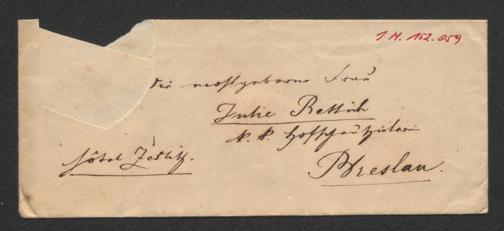 I.N. 152.059
Frau
Julie Rettich
k. k. Hofschauspielerin
Hôtel Zedlitz.
Breslau.